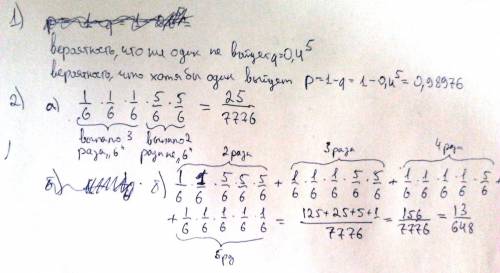 1)
вероятность, что ни один не выйдет q=0,4⁵
вероятность, что хотя бы один выйдет p=1-q=1-0,4⁵=0,98976
2) а) 1/6 · 1/6 · 1/6 · 5/6 · 5/6 = 25/7776
выпало 3 раза „6“ выпало 2 раза не „6“
2 раза 3 раза 4 раза
б) 1/6 · 1/6 · 5/6 · 5/6 · 5/6 + 1/6 · 1/6 · 1/6 · 5/6 · 5/6 + 1/6 · 1/6 · 1/6 · 1/6 · 5/6
+ 1/6 · 1/6 · 1/6 · 1/6 · 1/6 = 125+25+5+1/7776 = 156/7776 = 13/648